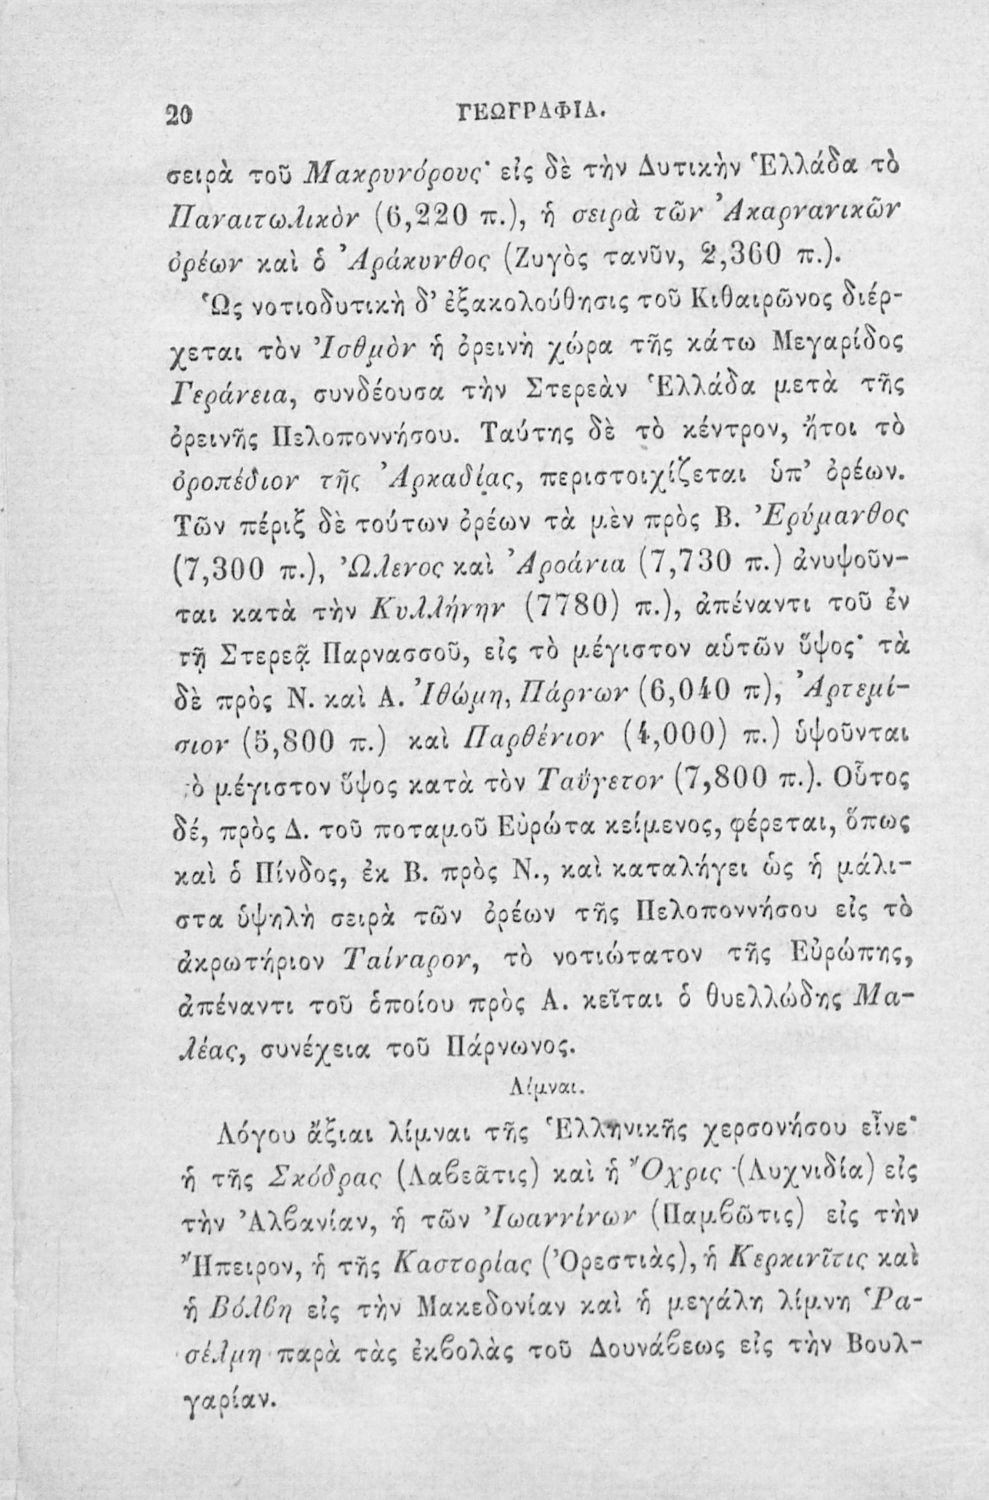 20 ΓΕΩΓΡΑΦΙΑ.
σειρὰ τοῦ Μακρυνόρους· εἰς δὲ τὴν Δυτικὴν Ἑλλάδα τὸ
Παναιτωλικὸν (6,220 π.), ἡ σειρὰ τῶν Ἀκαρνανικῶν
ὀρέων καὶ ὁ Ἀράκυνθος (Ζυγὸς τανῦν, 2,360 π.).
Ὡς νοτιοδυτικὴ δ’ ἐξακολούθησις τοῦ Κιθαιρῶνος διέρ-
χεται τὸν Ἰσθμὸν ἡ ὀρεινὴ χώρα τῆς κάτω Μεγαρίδος
Γεράνεια, συνδέουσα τὴν Στερεὰν Ἑλλάδα μετὰ τῆς
ὀρεινῆς Πελοποννήσου. Ταύτης δὲ τὸ κέντρον, ἤτοι τὸ
ὀροπέδιον τῆς Ἀρκαδίας, περιστοιχίζεται ὑπ’ ὀρέων.
Τῶν πέριξ δὲ τούτων ὀρέων τὰ μὲν πρὸς Β. Ἐρύμανθος
(7,300 π.), Ὤλενος καὶ Ἀροάνια (7,730 π.) ἀνυψοῦν-
ται κατὰ τὴν Κυλλήνην (7780) π.), ἀπέναντι τοῦ ἐν
τῇ Στερεᾷ Παρνασσοῦ, εἰς τὸ μέγιστον αὐτῶν ὕψος· τὰ
δὲ πρὸς Ν. καὶ Α. Ἰθώμη, Πάρνων (6,040 π), Ἀρτεμί-
σιον (5,800 π.) καὶ Παρθένιον (4,000) π.) ὑψοῦνται
τὸ μέγιστον ὕψος κατὰ τὸν Ταΰγετον (7,800 π.). Οὗτος
δέ, πρὸς Δ. τοῦ ποταμοῦ Εὐρώτα κείμενος, φέρεται, ὅπως
καὶ ὁ Πίνδος, ἐκ Β. πρὸς Ν., καὶ καταλήγει ὡς ἡ μάλι-
στα ὑψηλὴ σειρὰ τῶν ὀρέων τῆς Πελοποννήσου εἰς τὸ
ἀκρωτήριον Ταίναρον, τὸ νοτιώτατον τῆς Εὐρώπης,
ἀπέναντι τοῦ ὁποίου πρὸς Α. κεῖται ὁ θυελλώδης Μα-
λέας, συνέχεια τοῦ Πάρνωνος.
Λίμναι.
Λόγου ἄξιαι λίμναι τῆς Ἑλληνικῆς χερσονήσου εἶνε·
ἡ τῆς Σκόδρας (Λαβεᾶτις) καὶ ἡ Ὄχρις (Λυχνιδία) εἰς
τὴν Ἀλβανίαν, ἡ τῶν Ἰωαννίνων (Παμβῶτις) εἰς τὴν
Ἤπειρον, ἡ τῆς Καστορίας (Ὀρεστιὰς), ἡ Κερκινῖτις καὶ
ἡ Βόλβη εἰς τὴν Μακεδονίαν καὶ ἡ μεγάλη λίμνη Ῥα-
σέλμη παρὰ τὰς ἐκβολὰς τοῦ Δουνάβεως εἰς τὴν Βουλ-
γαρίαν.